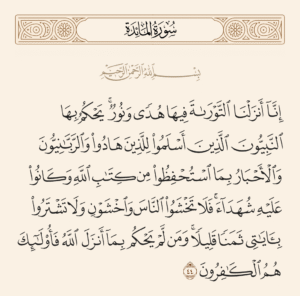 سُورَةُ المَائِدَةِ
بِسْمِ اللَّهِ الرَّحْمَٰنِ الرَّحِيمِ
إِنَّآ أَنزَلْنَا ٱلتَّوْرَىٰةَ فِيهَا هُدًى وَنُورٌ ۚ يَحْكُمُ بِهَا
ٱلنَّبِيُّونَ ٱلَّذِينَ أَسْلَمُوا۟ لِلَّذِينَ هَادُوا۟ وَٱلرَّبَّـٰنِيُّونَ
وَٱلْأَحْبَارُ بِمَا ٱسْتُحْفِظُوا۟ مِن كِتَـٰبِ ٱللَّهِ وَكَانُوا۟
عَلَيْهِ شُهَدَآءَ ۚ فَلَا تَخْشَوُا۟ ٱلنَّاسَ وَٱخْشَوْنِ وَلَا تَشْتَرُوا۟
بِـَٔايَـٰتِى ثَمَنًا قَلِيلًا ۚ وَمَن لَّمْ يَحْكُم بِمَآ أَنزَلَ ٱللَّهُ فَأُو۟لَـٰٓئِكَ
هُمُ ٱلْكَـٰفِرُونَ ٤٤